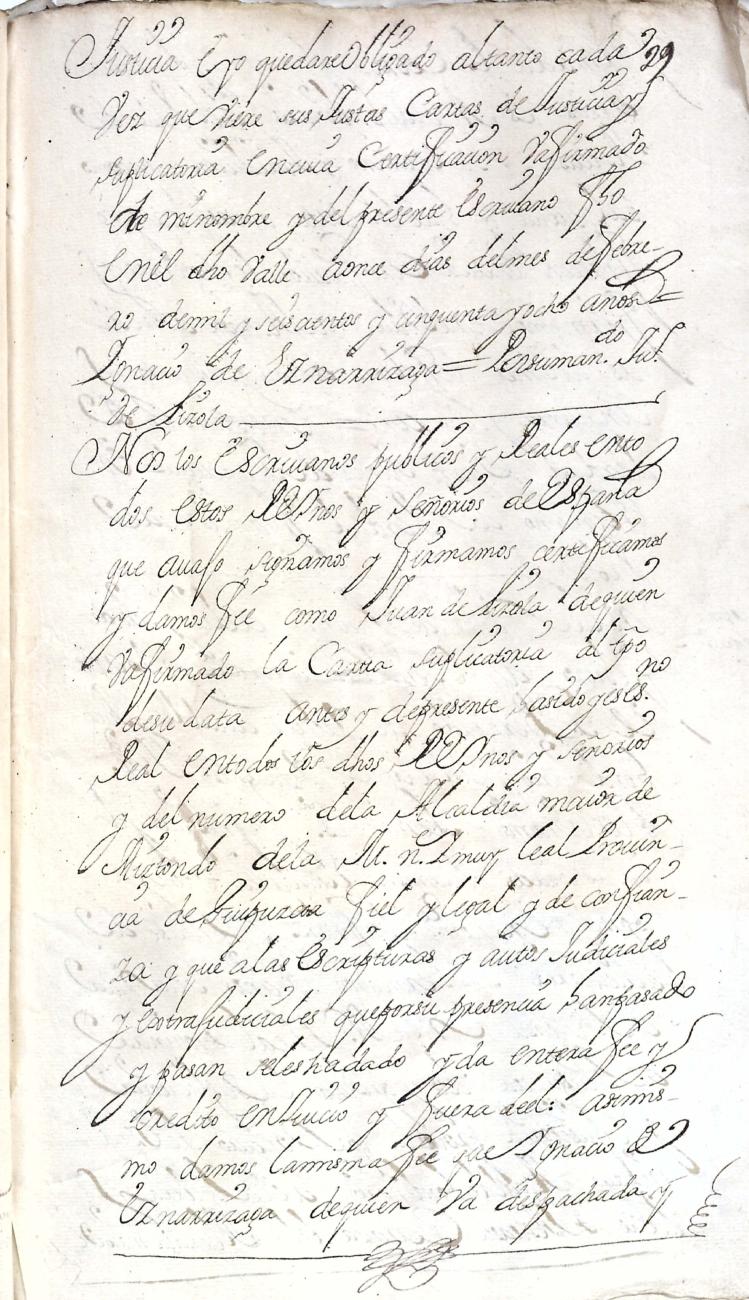 29
Justicia E yo quedare Obligado altanto cada
Vez que Viere sus Justas Cartas de Justicia y
suplicatoria En cuia Certificacion Vafirmado
de minombre y del presente Escriuano fho
Enel dho Valle aonce dias delmes de Febre-
ro demil y seiscientos y cinquenta yocho años =
Ignacio de Eznarrizaga = Porsuman.do Ju.º
de Lizola
Nos los Escriuanos publicos y Reales ento
dos estos REynos y señorios de España
que auajo signamos y firmamos certificamos
y damos fee como Juan de Lizola dequien
Vafirmado la Carta suplicatoria al tpõ
desu data antes y depresente hasido yes es.no
Real entodos los dhos REynos y señorios
y del numero dela Alcaldia maior de
Aiztondo dela M. N. I muy leal Prouin-
cia de Guipuzcoa fiel y legal y de confian-
za y que alas Escripturas y autos Judiciales
y extraJudiciales queporsu presencia hanpasado
y pasan seleshadado yda entera fee y
credito enJuicio y fuera del: asimis-
mo damos lamisma fee que Ignacio de
Eznarrizaga dequien Va despachada y